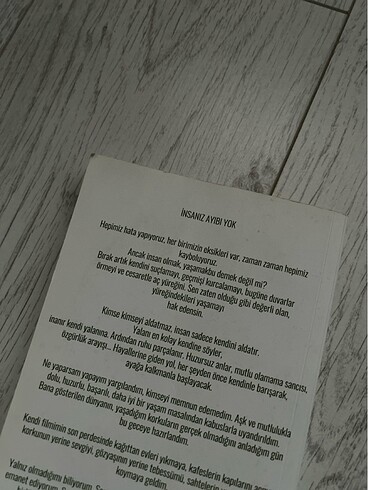 İNSANIZ AYIBI YOK
Hepimiz hata yapıyoruz, her birimizin eksikleri var, zaman zaman hepimiz
kayboluyoruz.
Ancak insan olmak, yaşamakbu demek değil mi?
Bırak artık kendini suçlamayı, geçmişi kurcalamayı, bugüne duvarlar
örmeyi ve cesaretle aç yüreğini. Sen zaten olduğu gibi değerli olan,
yüreğindekileri yaşamayı
hak edensin.
Kimse kimseyi aldatmaz, insan sadece kendini aldatır.
Yalanı en kolay kendine söyler,
inanır kendi yalanına. Ardından ruhu parçalanır. Huzursuz anlar, mutlu olamama sancısı,
özgürlük arayışı... Hayallerine giden yol, her şeyden önce kendinle barışarak,
ayağa kalkmanla başlayacak.
Ne yaparsam yapayım yargılandım, kimseyi memnun edemedim. Aşk ve mutlulukla
dolu, huzurlu, başarılı, daha iyi bir yaşam masalından kabuslarla uyandırıldım.
Bana gösterilen dünyanın, yaşadığım korkuların gerçek olmadığını anladığım gün
bu geceye hazırlandım.
Kendi filmimin son perdesinde kağıttan evleri yıkmaya, kafeslerin kapılarını
korkunun yerine sevgiyi, gözyaşının yerine tebessümü, sahtelerin
koymaya geldim.
Yalnız olmadığımı biliyorum.
emanet ediyorum.